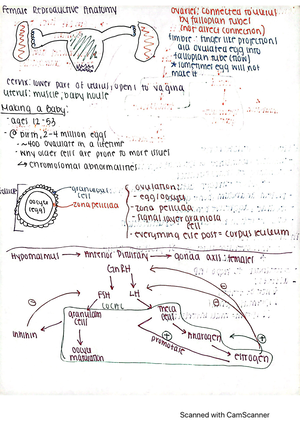 Female Reproductive Anatomy
ovaries: connected to uterus
by fallopian tubes
(not direct connection)
fimbriae: finger like projections
aid ovulated egg into
fallopian tube (now)
*sometimes egg will not
make it
cervix: lower part of uterus, opens to vagina
uterus: muscle, baby house
Making a baby:
ages 12-53
- @ birth, 2-4 million eggs
- ~400 ovulate in a lifetime
- why older cells are prone to more issues
↳ chromosomal abnormalities
follicle
oocyte
(egg)
granulosa
cell
zona pellucida
ovulation:
- egg/oocyte
- zona pelicida
- single layer granulosa
cell
- everything else post = corpus luteum
Hypothalmus → Anterior Pituitary → gonda axis: females
GnRH
FSH
LH
granulosa
cell
theca
cell
inhibin
oocyte
maturation
androgen
aromatase
estrogen
Scanned with CamScanner